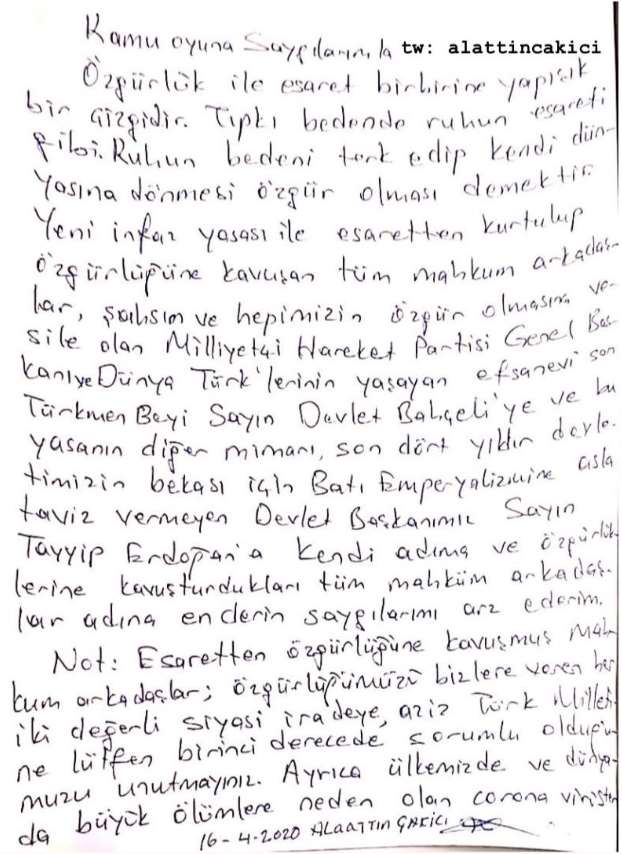 Kamu oyuna Saygılarımla tw: alattincakici
Özgürlük ile esaret birbirine yapışık
bir çizgidir. Tıpkı bedende ruhun esareti
gibi. Ruhun bedeni terk edip kendi dün-
yasına dönmesi özgür olması demektir.
Yeni infaz yasası ile esaretten kurtulup
özgürlüğüne kavuşan tüm mahkum arkadaş-
lar, şahsım ve hepimizin özgür olmasına ve-
sile olan Milliyetçi Hareket Partisi Genel Baş-
kanı ve Dünya Türk'lerinin yaşayan efsanevi son
Türkmen Beyi Sayın Devlet Bahçeli'ye ve bu
yasanın diğer mimarı, son dört yıldır devle-
timizin bekası için Batı Emperyalizmine asla
taviz vermeyen Devlet Başkanımız Sayın
Tayyip Erdoğan'a kendi adıma ve özgürlük-
lerine kavuşturdukları tüm mahküm arkadaş-
lar adına en derin saygılarımı arz ederim.
Not: Esaretten özgürlüğüne kavuşmuş mah-
kum arkadaşlar; özgürlüğümüzü bizlere veren her
iki değerli siyasi iradeye, aziz Türk Milleti-
ne lütfen birinci derecede sorumlu olduğu-
muzu unutmayınız. Ayrıca ülkemizde ve dünya-
da büyük ölümlere neden olan corona
16-4-2020 ALAATTİN ÇAKICI